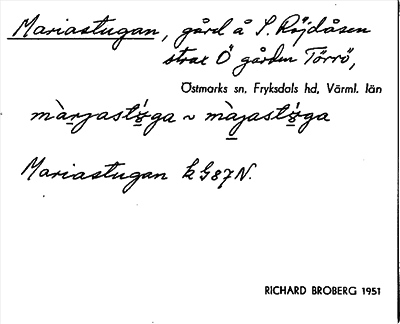 Mariastugan, gård å S. Röjdåsen
strax Ö gården Törrö,
Östmarks sn, Fryksdals hd, Värml. län
màrjast ga ~ màjast ga
Mariastugan k G87N.
RICHARD BROBERG 1951